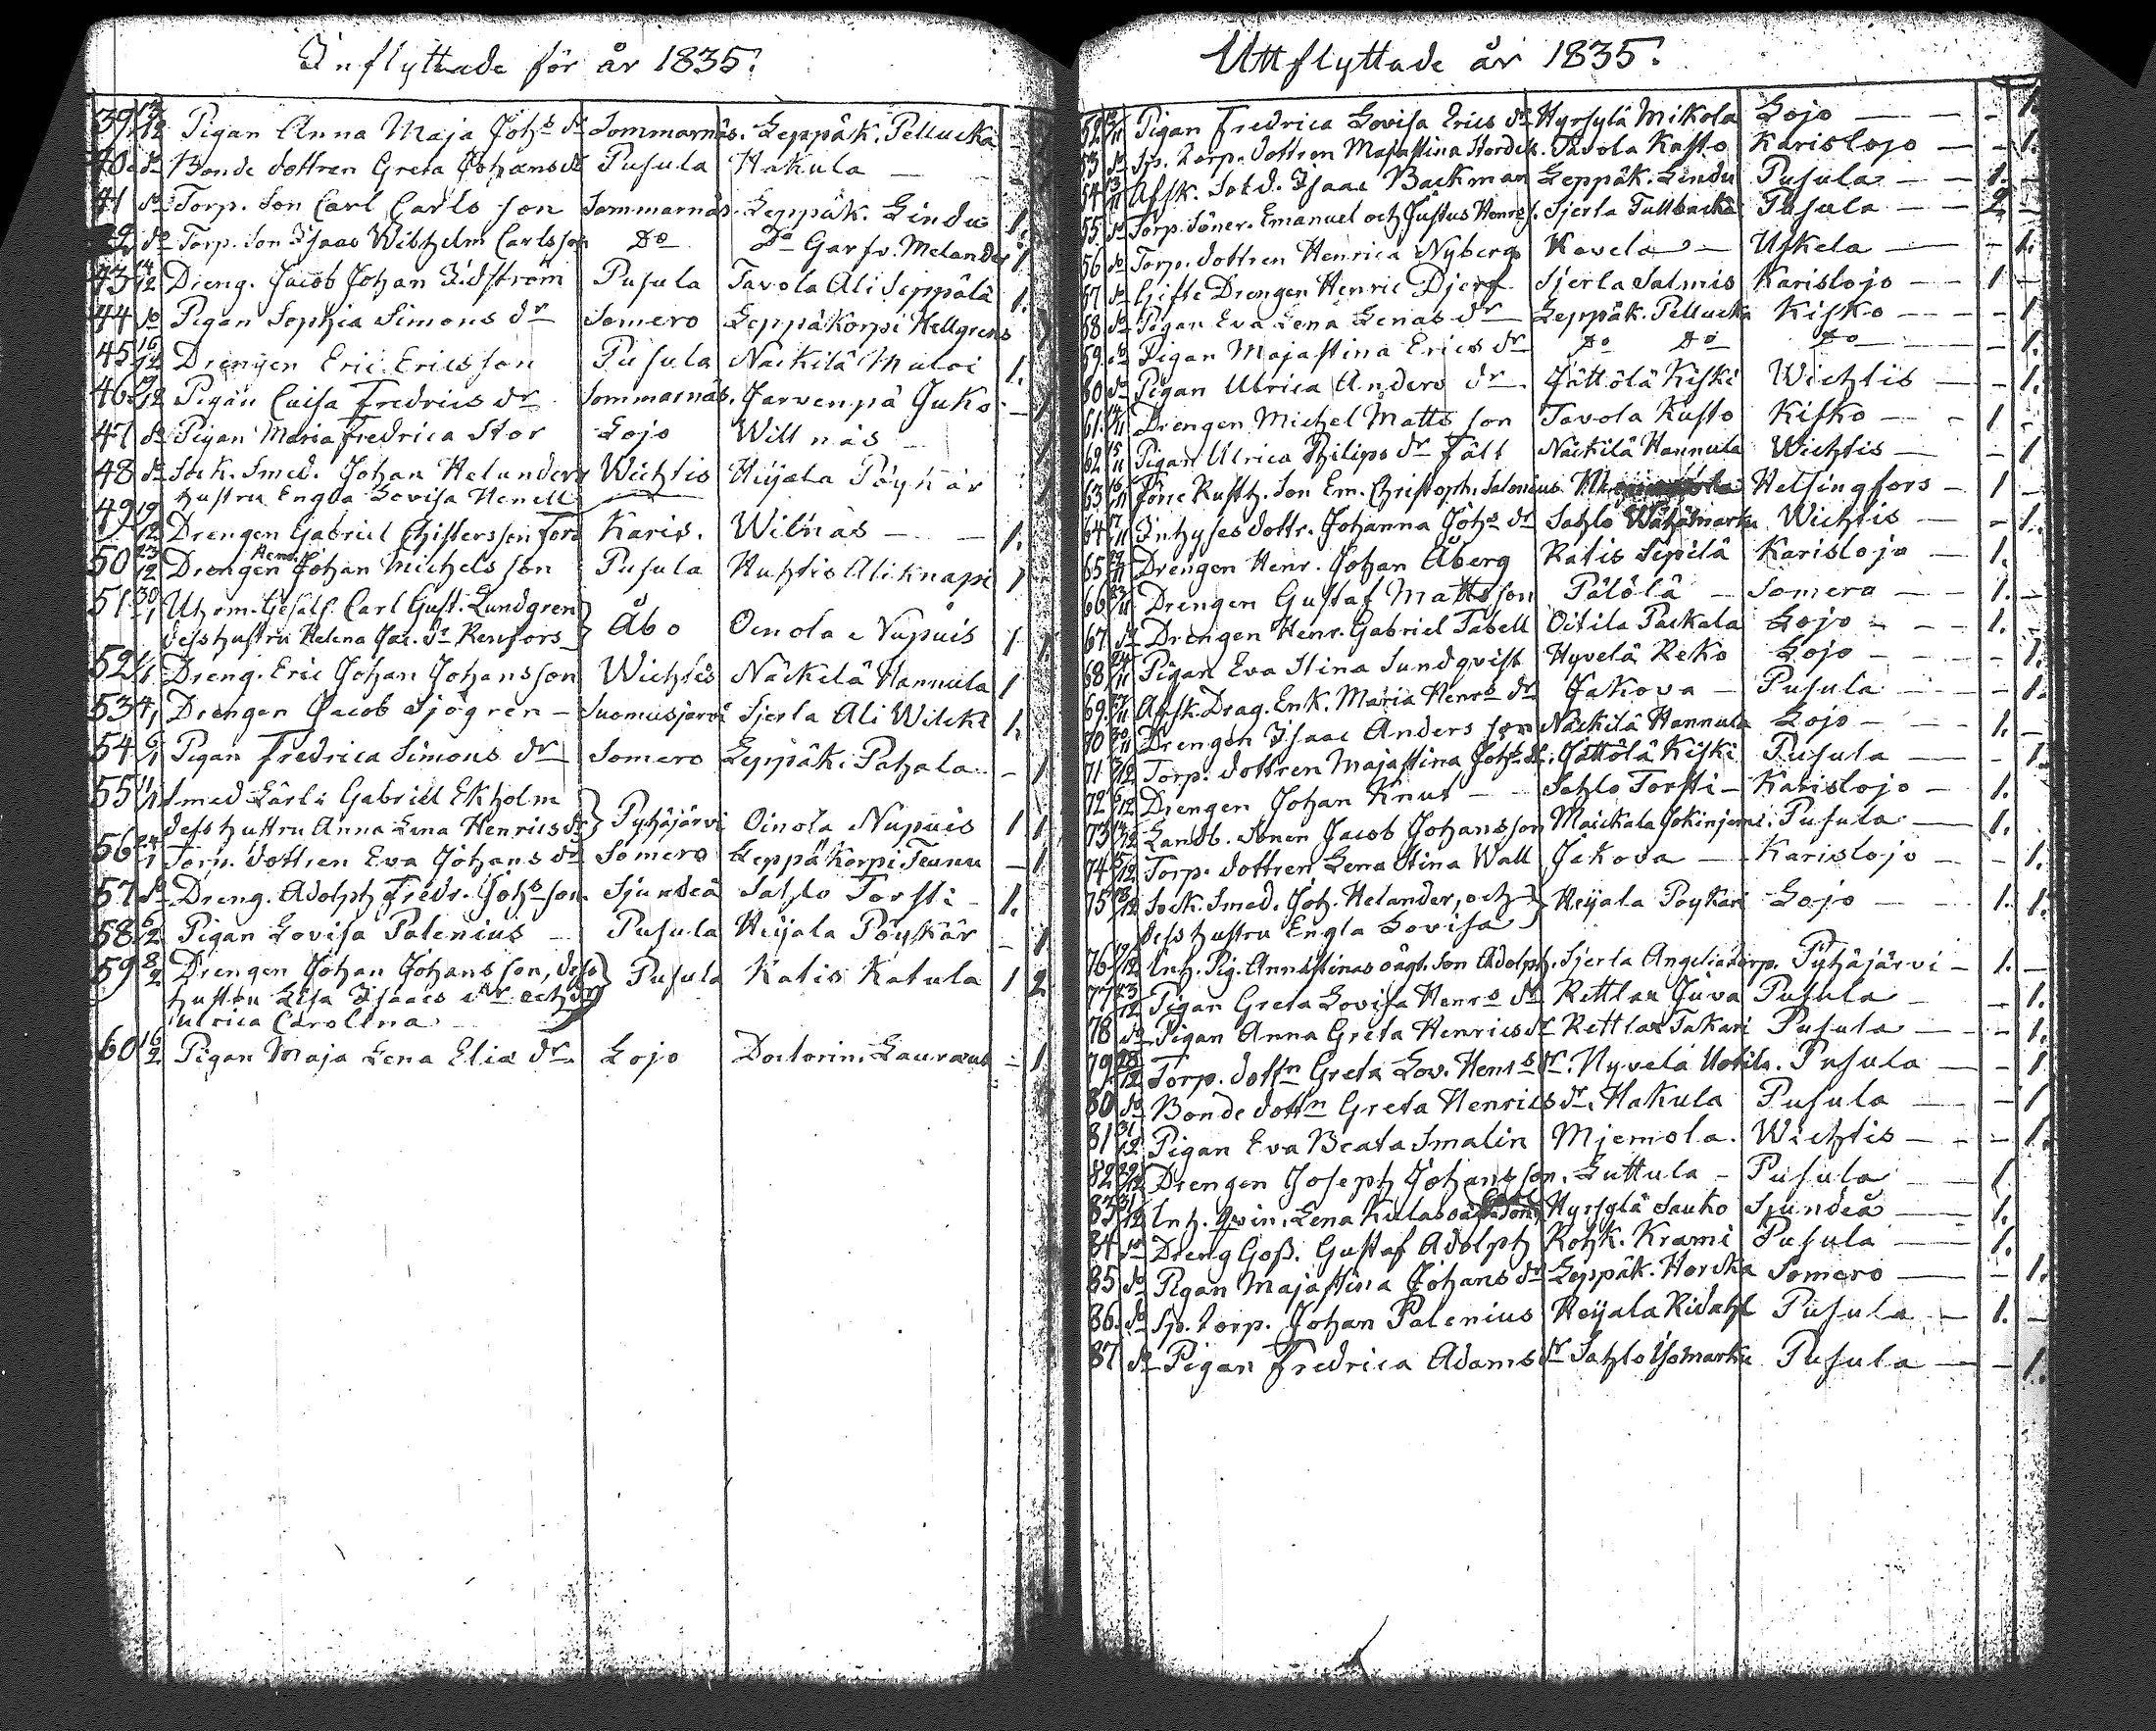 Inflyttade för år 1835.
39 13/12 Pigan Anna Maja Johs dr Sommarnäs. Leppäk. Pellucka
40 do Bonde dottren Greta Johans dr Pusula Hakula
41 do Torp. Son Carl Carls son Sommarnäs. Leppäk. Lindu 1.
42 do Torp. Son Isaac Wilhelm Carlsson Do Do Garfv. Melander 1.
43 14/12 Dreng. Jacob Johan Lidström Pusula Tavola Ali Seppälä 1.
44 do Pigan Sophia Simons dr Somero Leppäkorpi Hellgrens 1
45 16/12 Drengen Eric Ericsson Pusula Näckilä Muloi 1.
46 /12 Pigan Caisa Fredrics dr Sommarnäs. Jarvenpä Juko - 1
47 do Pigan Maria Fredrica Stor Lojo Willnäs
48 do Sock. Smed. Johan Helanders Wichtis Heijala Pöykär
hustru Engla Lovisa Henell
49 19/12 Drengen Gabriel Christersson Fors Karis. Wilnäs - 1.
50 23/12 Drengen Henr. Johan Michels son Pusula Huhtis Aliknapi 1
51 30/1 Uhrm. Gesäll. Carl Gust. Lundgren
dess hustru Helena Jac. dr Renfors } Åbo Oinola Nupuis 1 1
52 1/1 Dreng. Eric Johan Johansson Wichtis Näckilä Hannula 1
53 4/1 Drengen Jacob Sjögren - Suomusjärvi Sjerla Ali Wilcki 1.
54 6/1 Pigan Fredrica Simons dr Somero Leppäk. Pahala - 1
55 Smed Lärl: Gabriel Ekholm
dess hustru Anna Lena Henrics dr } Pyhäjärvi Oinola Nupuis 1 1
56 24/1 Torp. dottren Eva Johans dr Somero Leppäkorpi Teunu - 1
57 do Dreng. Adolph Fredr. Johs son. Sjundeå Sahlo Torsti - 1.
58 6/2 Pigan Lovisa Palenius - Pusula Heijala Pöykär - 1
59 8/2 Drengen Johan Johansson, dess } Pusula Katis Katula 1 2
hustru Lisa Isaacs dr och dr
Ulrica Carolina
60 16/2 Pigan Maja Lena Elia dr. Lojo Doctorin. Lauræus - 1
Uttflyttade år 1835.
52 /11 Pigan Fredrica Lovisa Erics dr Hyrsylä Mikola Lojo - 1.
53 do Sp. Torp. dottren Majastina Hordek. Tavola Kasto Karislojo - 1.
54 13/11 Afsk. Sold. Isaac Backman Leppäk. Lindu Pusula - 1. -
55 do Torp. Söner. Emanuel och Justus Henrs s. Sjerla Tullbacka Pusula - 2 -
56 do Torp. dottren Henrica Nyberg Kovela - Uskela - 1.
57 do Gifte Drengen Henric Djerf Sjerla Salmis Karislojo - 1 -
58 do Pigan Eva Lena Lenas dr Leppäk. Pellucka Kisko - 1
59. do Pigan Majastina Erics dr Do Do Do - 1.
60 do Pigan Ulrica Anders dr. Jättölä Kiski Wichtis - 1.
61. 14/11 Drengen Michel Matts son Tavola Kusto Kisko - 1 -
62 15/11 Pigan Ulrica Philips dr Fält Näckilä Hannula Wichtis - 1
63 16/11 Em. Christoph. Salonius Helsingfors - 1 -
64 /11 Inhyses dottr. Johanna Johs dr Sahlo Wähämarku Wichtis - 1.
65 /11 Drengen Henr. Johan Åberg Katis Sipilä Karislojo - 1.
66 /11 Drengen Gustaf Mattsson Pälölä - Somero - 1. -
67 do Drengen Henr. Gabriel Tabell Oitila Packala Lojo - 1. -
68 24/11 Pigan Eva Stina Sundqvist Hyvelä Reko Lojo - 1.
69. 27/11 Afsk. Drag. Enk. Maria Henrs dr Jakova - Pusula - 1.
70 30/11 Drengen Isaac Anders son Näckilä Hannula Lojo - 1. -
71 /12 Torp. dottren Majastina Johs dr. Jättölä Kiski Pusula - 1.
72 /12 Drengen Johan Knut - Sahlo Torsti - Karislojo - 1.
73 /12 Landb. Sonen Jacob Johansson Maickala Jokinjemi. Pusula - 1.
74 /12 Torp. dottren Lena Stina Wall Jakova - Karislojo - 1.
75 18/12 Sock. Smed. Joh. Helander, och } Heijala Poykari Lojo - 1. 1.
dess hustru Engla Lovisa
76 19/12 Inh. Pig. Annastinas oägt. Son Adolph. Sjerla Angelia torp. Pyhäjärvi - 1. -
77 23/12 Pigan Greta Lovisa Henrs dr Kettlan Juva Pusula - 1.
78 do Pigan Anna Greta Henrics dr Kettlan Takari Pusula - 1.
79 28/12 Torp. dottn Greta Lov. Henrs dr. Hyvelä Uotila. Pusula - 1
80 do Bonde dottn Greta Henrics dr. Hakula Pusula - 1
81 31/12 Pigan Eva Beata Smalin Mjemola. Wichtis - 1.
82 29/12 Drengen Joseph Johansson. Luttula - Pusula - 1
83 31/12 Inh. Qvin. Lena Kulas oä. Son Hyrsylä Sauko Sjundeå - 1.
84 do Dreng Goss. Gustaf Adolph Rohk. Krami Pusula - 1.
85 do Pigan Majastina Johans dr Leppäk. Horcka Somero - 1.
86. do Sp. Torp. Johan Palenius Heijala Ridahl Pusula - 1. -
87 do Pigan Fredrica Adams dr Sahlo Isomarku Pusula - 1.